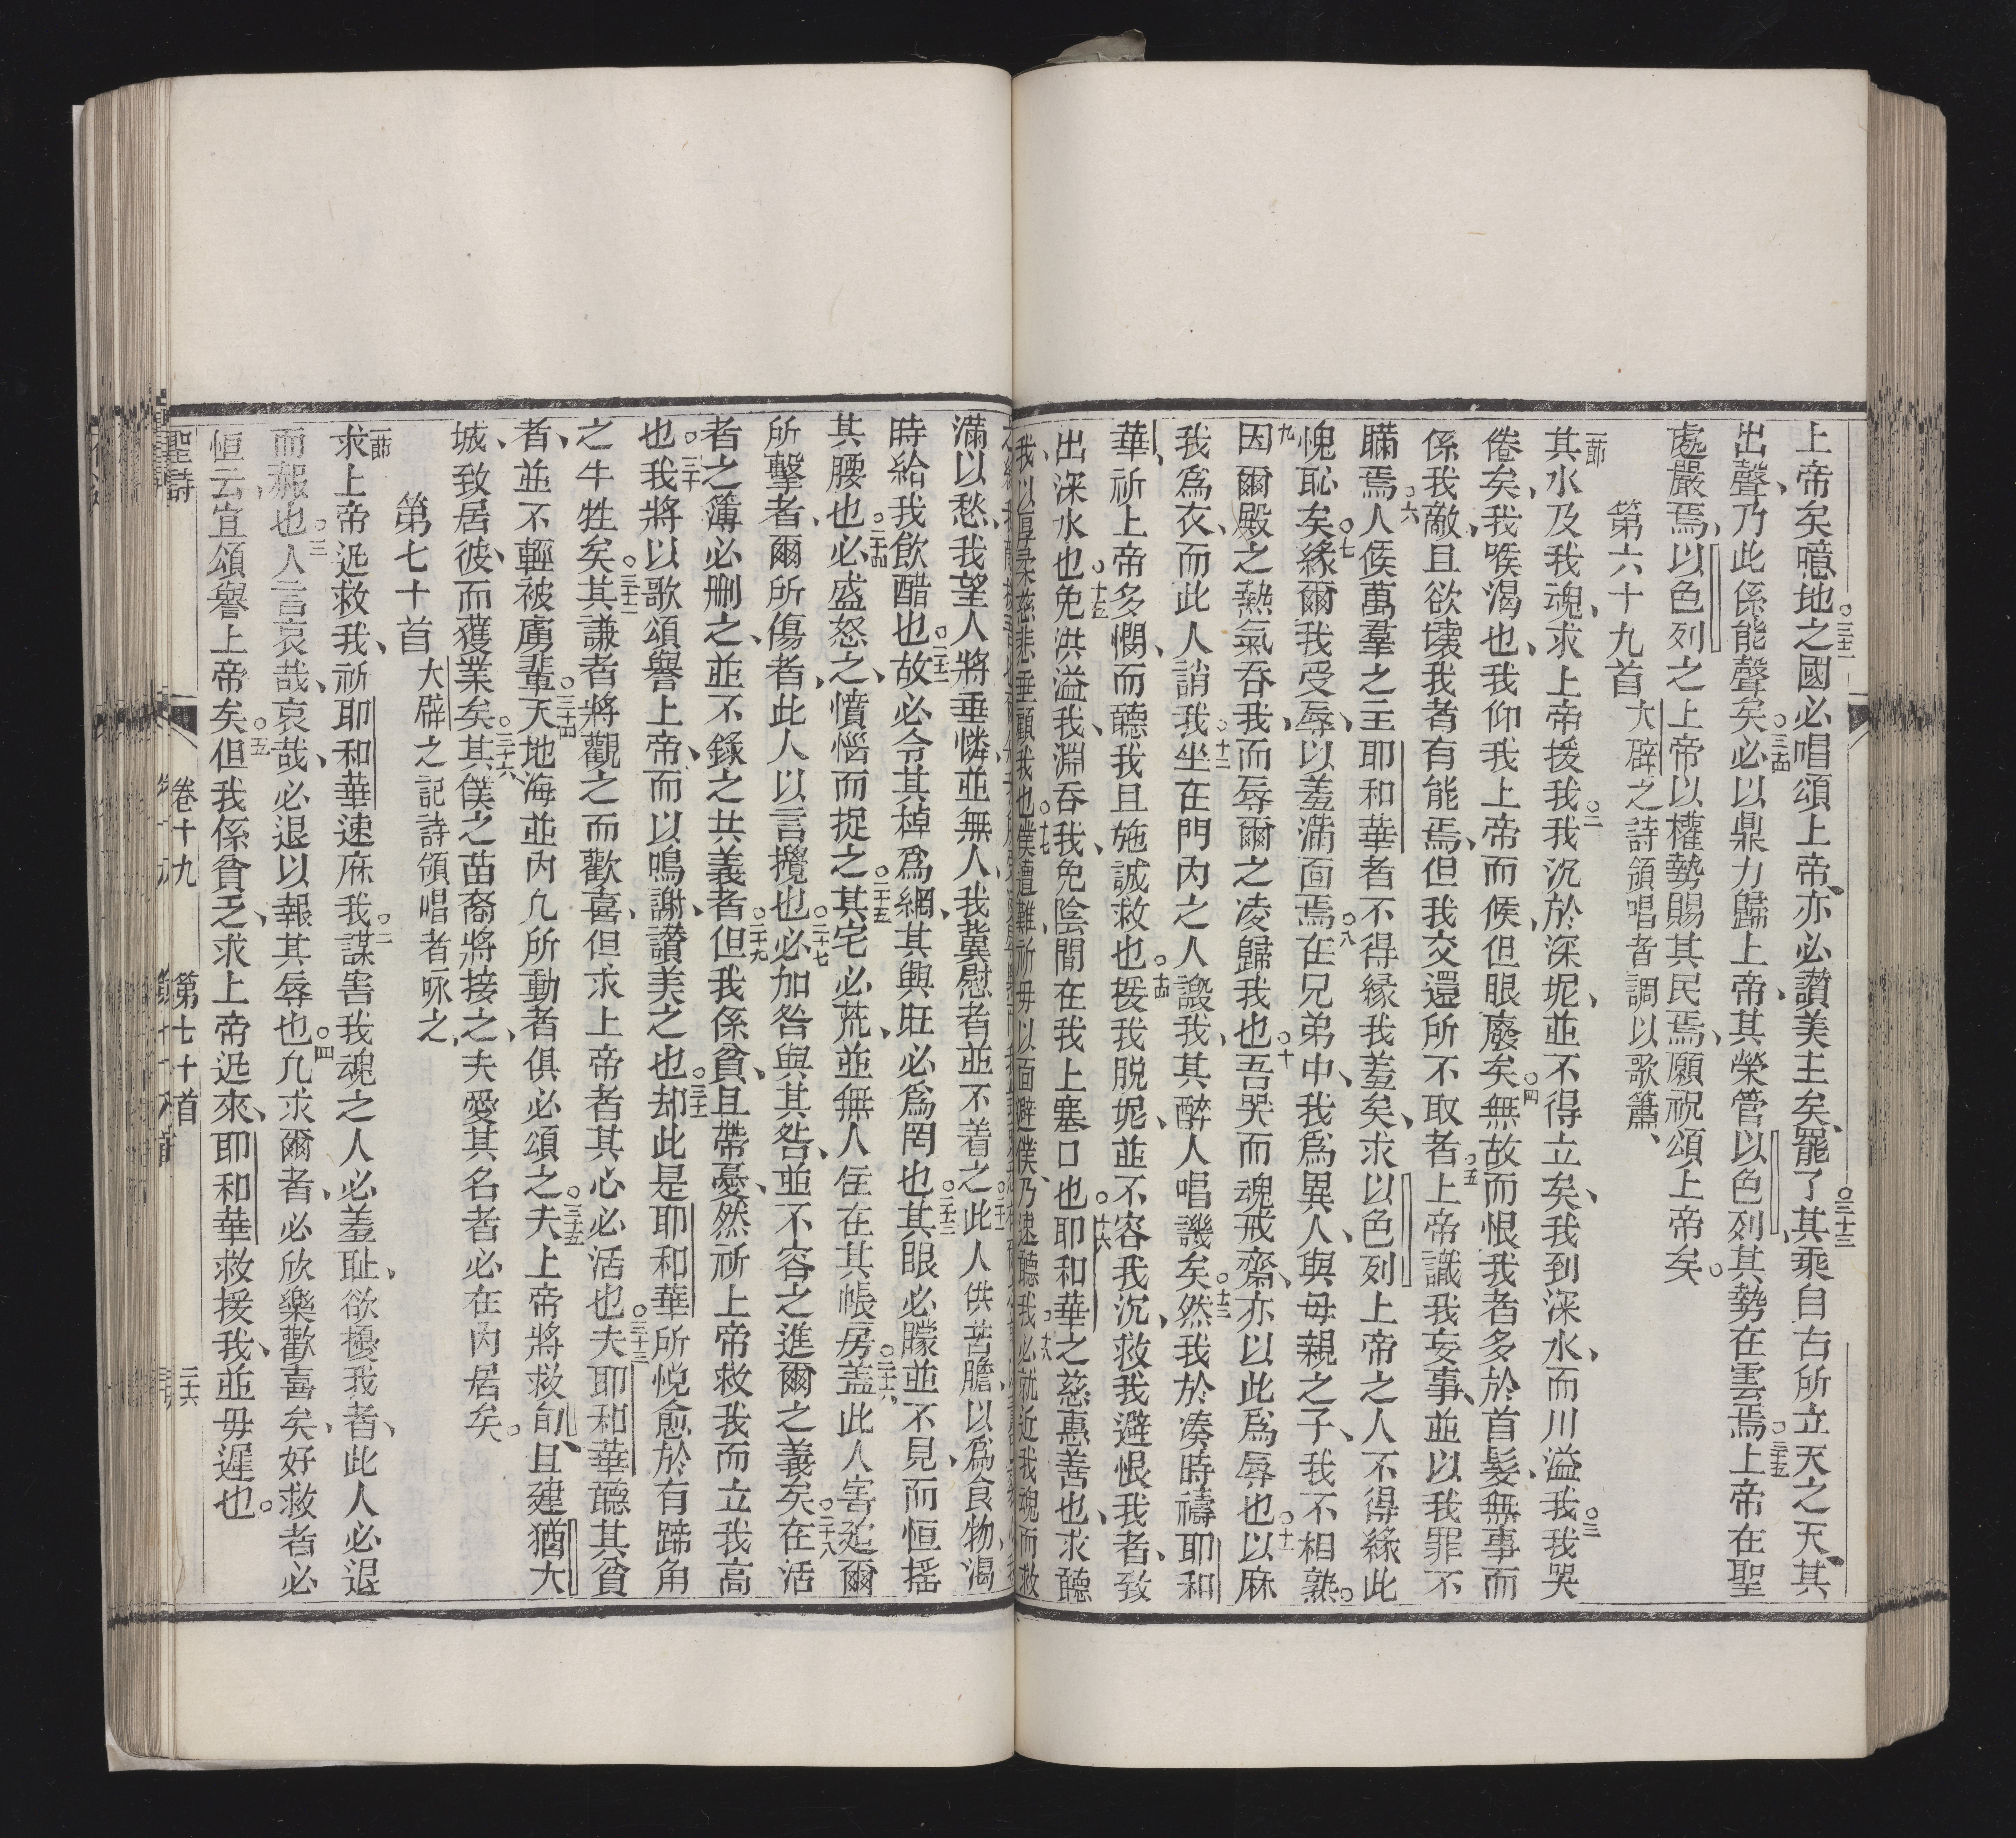 上帝矣噫地之國必唱頌上帝亦必讚美主矣罷了其乘自古所立天之天其
出聲乃此係能聲矣必以鼎力歸上帝其榮管以色列其勢在雲焉上帝在聖
處嚴焉以色列之上帝以權勢賜其民焉願祝頌上帝矣
第六十九首 大辟之詩領唱者調以歌簫
一節 其水及我魂求上帝援我我沉於深坭並不得立矣我到深水而川溢我我哭
倦矣我喉渴也我仰我上帝而候但眼廢矣無故而恨我者多於首髮無事而
係我敵且欲壞我者有能焉但我交還所不取者上帝識我妄事並以我罪不
瞞焉人候萬羣之主耶和華者不得緣我羞矣求以色列上帝之人不得緣此
愧恥矣緣爾我受辱以羞滿面焉在兄弟中我爲異人與毋親之子我不相熟
因爾殿之熱氣吞我而辱爾之凌歸我也吾哭而魂戒齋亦以此爲辱也以麻
我爲衣而此人誚我坐在門內之人譭我其醉人唱譏矣然我於凑時禱耶和
華祈上帝多憫而聽我且施誠救也援我脫坭並不容我沉救我避恨我者致
出深水也免洪溢我淵吞我免陰間在我上塞口也耶和華之慈惠善也求聽
我以厚柔慈悲垂顧我也僕遭難祈毋以面避僕乃速聽我必就近我魂而救
滿以愁我望人將垂憐並無人我冀慰者並不着之此人供苦膽以爲食物渴
時給我飲醋也故必令其棹爲網其興旺必爲罔也其眼必矇並不見而恒摇
其腰也必盛怒之憤惱而捉之其宅必荒並無人住在其帳房蓋此人害廹爾
所擊者爾所傷者此人以言攪也必加咎與其咎並不容之進爾之義矣在活
者之簿必刪之並不錄之共義者但我係貧且帶憂然祈上帝救我而立我高
也我將以歌頌譽上帝而以鳴謝讚美之也却此是耶和華所悅愈於有蹄角
之牛牲矣其謙者將觀之而歡喜但求上帝者其心必活也夫耶和華聽其貧
者並不輕被虜輩天地海並內凢所動者俱必頌之夫上帝將救郇且建猶大
城致居彼而獲業矣其僕之苗裔將接之夫愛其名者必在內居矣
第七十首 大辟之記詩領唱者咏之
一節 求上帝廹救我祈耶和華速庥我謀害我魂之人必羞耻欲擾我者此人必退
而赧也人言哀哉哀哉必退以報其辱也凢求爾者必欣樂歡喜矣好救者必
恒云宜頌譽上帝矣但我係貧乏求上帝廹來耶和華救援我並毋遲也
聖詩 卷十九 第七十首 三六